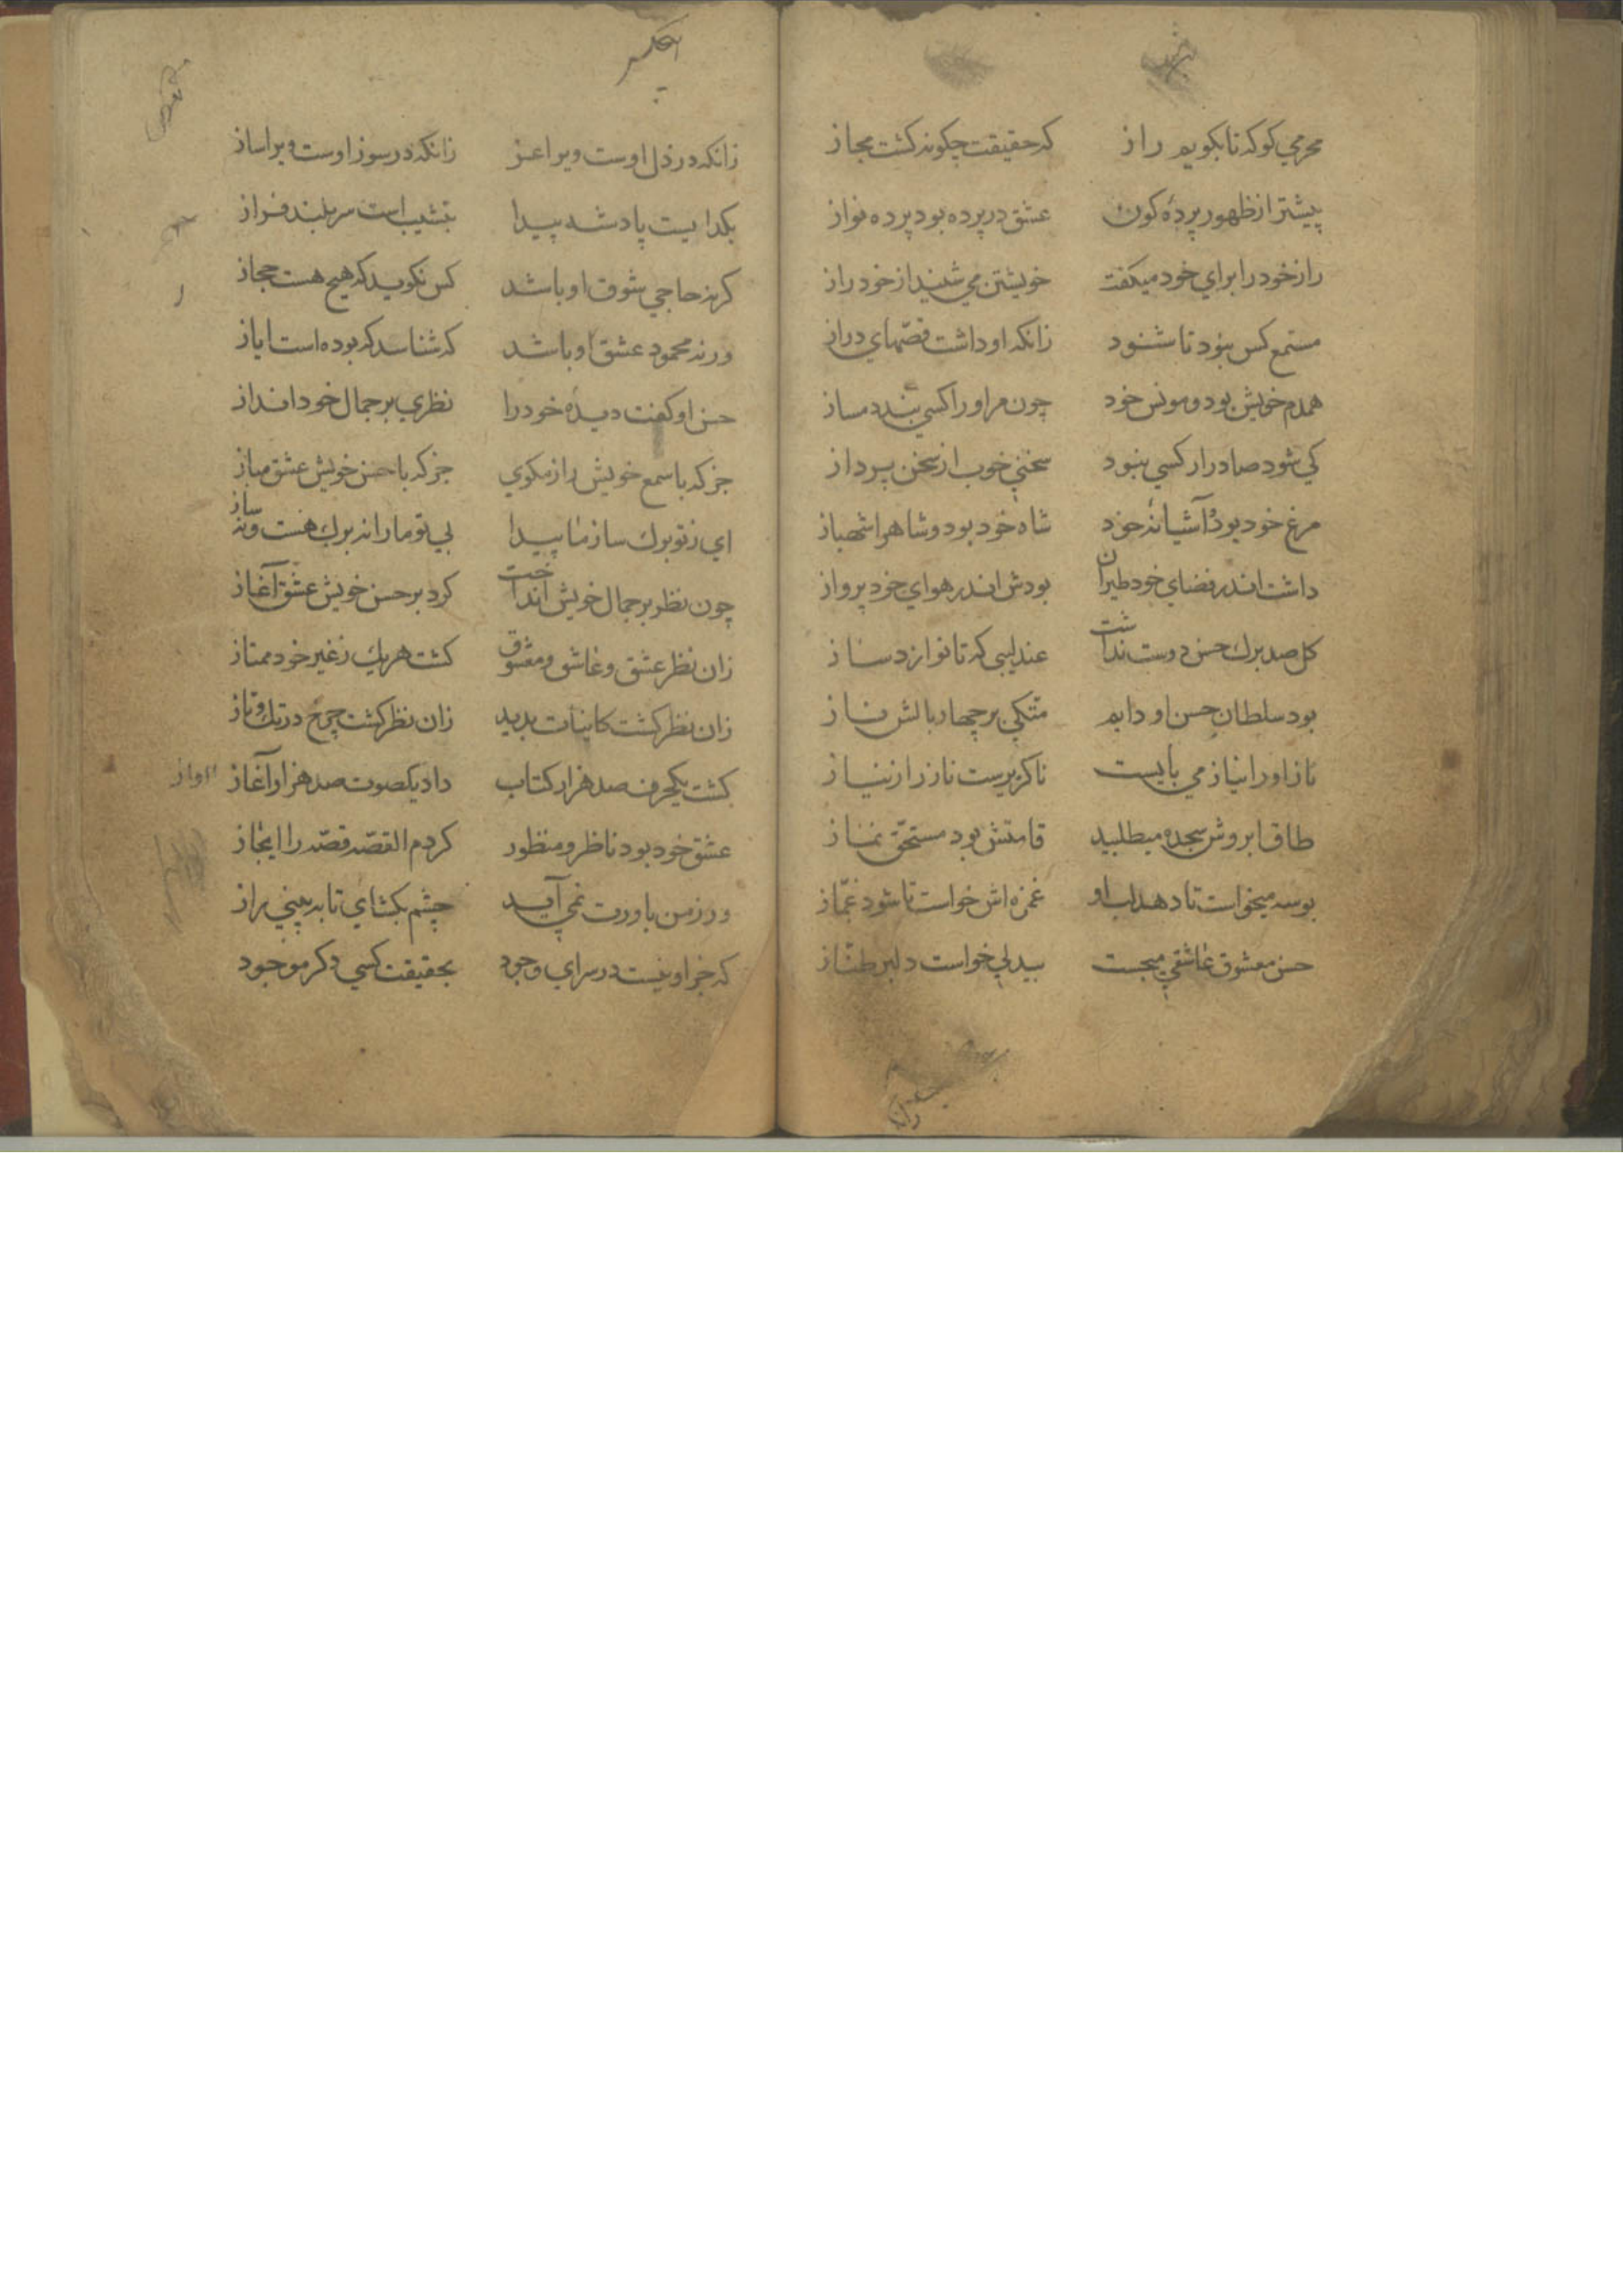 محرمي كو كه تا بكويم راز که حقيقت چكونه كشت مجاز
پيشتر از ظهور پردهٔ كون عشق در پرده بود پرده نواز
راز خود را براي خود ميكفت خويشتن مي شنيد از خود راز
مستمع كس نبود تا شنود زانكه او داشت قصّهاي دراز
همدم خويش بود و مونس خود چون مر او را كسي نبد دمساز
كي شود صادر از كسي نبود سخني خوب از سخن پرداز
مرغ خود بود و آشيانهٔ خود شاه خود بود و شاه را شهباز
داشت اندر فضاي خود طيران بودش اندر هواي خود پرواز
كل صد برك حسن دوست نداشت عندليبي كه تا نوازد ساز
بود سلطان حسن او دايم متكي بر چهار بالش ناز
ناز او را نياز مي بايست ناكزيرست ناز را ز نياز
طاق ابروش سجده ميطلبيد قامتش بود مستحقّ نماز
بوسه ميخواست تا دهد لب او غمزه اش خواست تا شود غمّاز
حسن معشوق عاشقي ميجست بيدلي خواست دلبر طنّاز
زانكه در ذل اوست ويرا عز زانكه در سوز اوست ويرا ساز
بكداييست پادشه پيدا بنشيب است سربلند فراز
كر نه حاجي شوق او باشد كس نكويد كه هيچ هست حجاز
ور نه محمود عشق او باشد كه شناسد كه بوده است اياز
حسن او كفت ديدهٔ خود را نظري بر جمال خود انداز
جز كه با سمع خويش راز مكوي جز كه با حسن خويش عشق مباز
اي ز تو برك ساز ما پيدا بي تو ما را نه برك هست و نه ساز
چون نظر بر جمال خويش انداخت كرد بر حسن خويش عشق آغاز
زان نظر عشق و عاشق و معشوق كشت هر يك ز غير خود ممتاز
زان نظر كشت كاينات پديد زان نظر كشت چرخ در تك و تاز
كشت يكحرف صد هزار كتاب داد يكصوت صد هزار آغاز آواز
عشق خود بود ناظر و منظور كردم القصّه قصّه را ايجاز
ور ز من باورت نمي آيد چشم بكشاي تا ببيني راز
كه جز او نيست در سراي وجود بحقيقت كسي دكر موجود